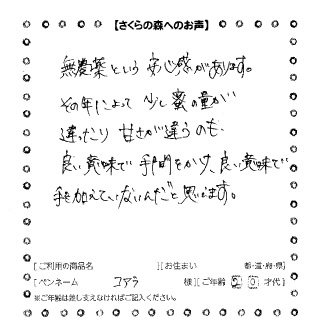 【さくらの森へのお声】
無農薬という安心感があります。
その年によって少し蜜の量が
違ったり甘さが違うのも、
良い意味で手間をかけ、良い意味で
手を加えていないんだと思います。
[ご利用の商品名 ][お住まい 都・道・府・県]
[ペンネーム コアラ 様][ご年齢 50才代]
※ご年齢は差し支えなければご記入ください。